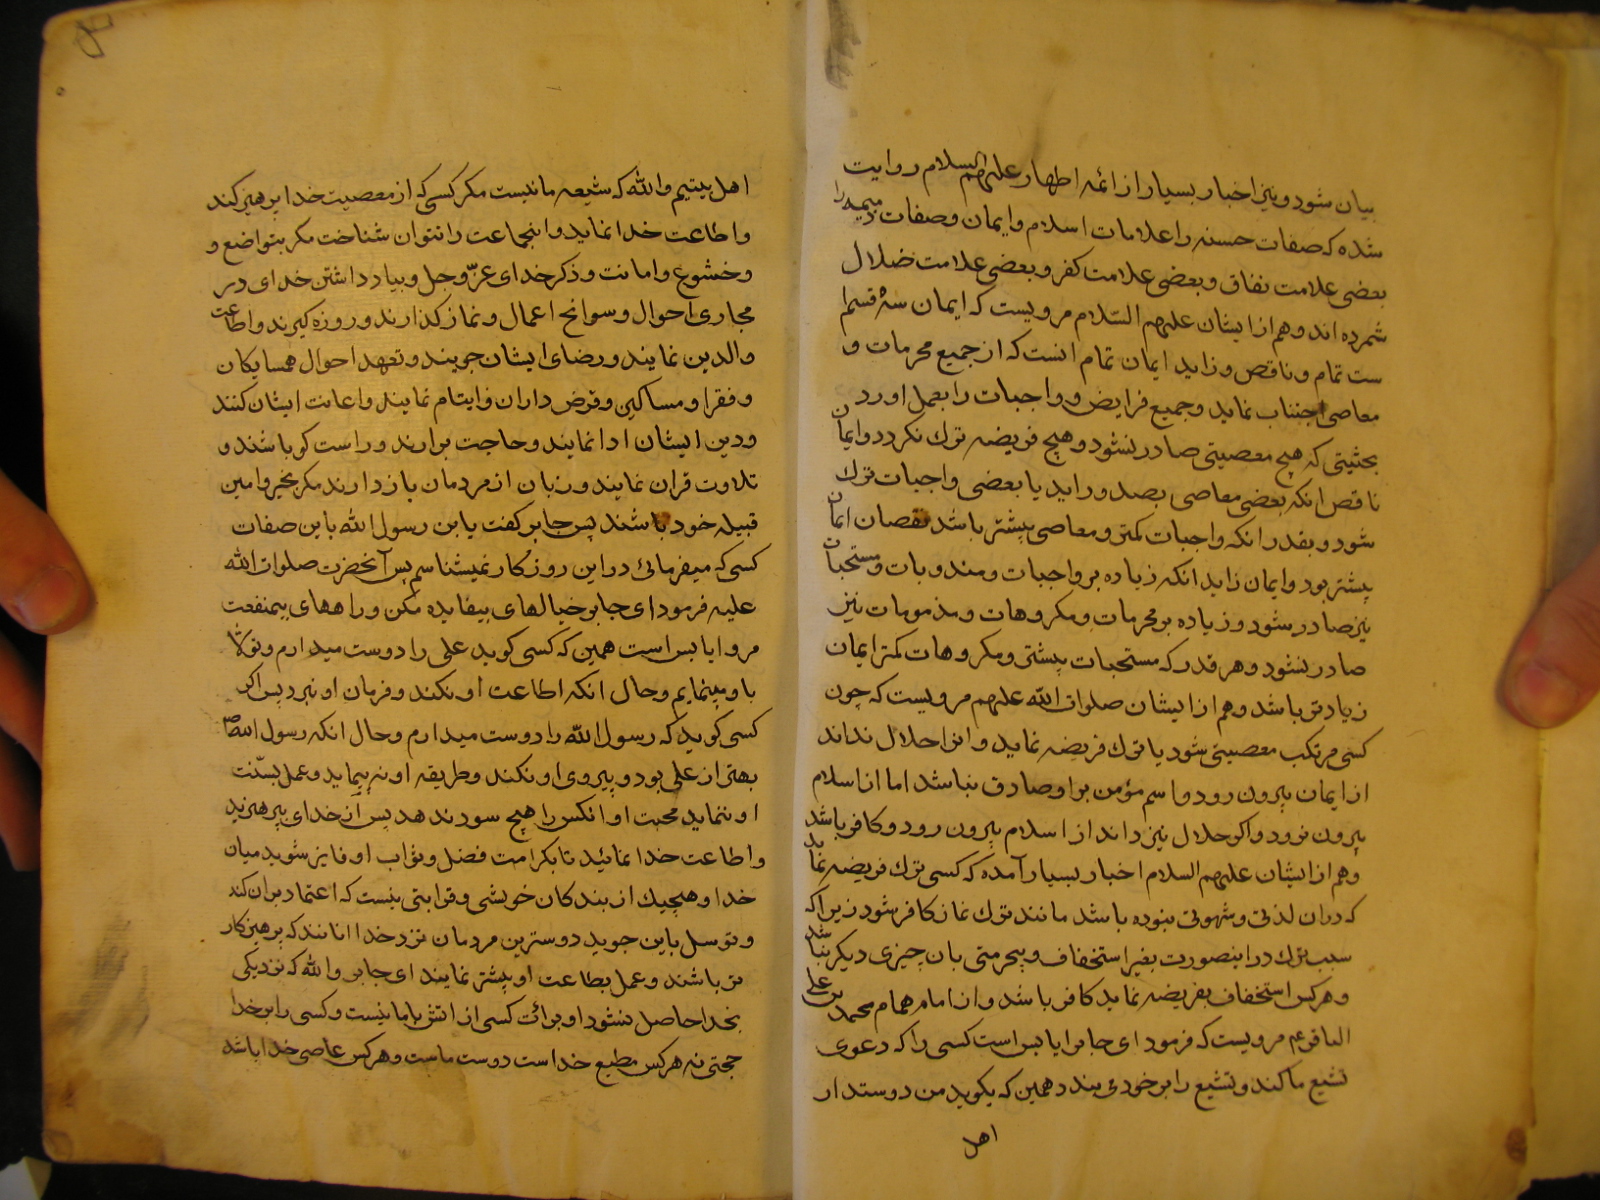 بیان شود و نیز اخبار بسیار از ائمه اطهار علیهم السلام روایت
شده که صفات حسنه را علامات اسلام و ایمان و صفات ذمیمه را
بعضی علامت نفاق و بعضی علامت کفر و بعضی علامت ضلال
شمرده اند و هم از ایشان علیهم السّلام مرویست که ایمان سه قسم
ست تمام و ناقص و زاید ایمان تمام انست که از جمیع محرمات و
معاصی اجتناب نماید و جمیع فرایض و واجبات را بعمل اورد
بحثیتی که هیچ معصیتی صادر نشود و هیچ فریضه ترك نکردد و ایمان
ناقص انکه بعضی معاصی بصدور اید یا بعضی واجبات ترك
شود و بقدر انکه واجبات کمتر و معاصی بیشتر باشد نقصان ایمان
بیشتر بود و ایمان زاید انکه زیاده بر واجبات و مندوبات و مستحبات
نیز صادر شود و زیاده بر محرمات و مکروهات و مذمومات نیز
صادر نشود و هر قدر که مستحبات بیشتر و مکروهات کمتر ایمان
زیادتر باشد و هم از ایشان صلوات الله علیهم مرویست که چون
کسی مرتکب معصیتی شود یا ترك فریضه نماید و انرا حلال نداند
از ایمان بیرون رود و اسم مؤمن بر او صادق نباشد اما از اسلام
بیرون نرود و اکر حلال نیز داند از اسلام بیرون رود و کافر باشد
و هم از ایشان علیهم السلام اخبار بسیار آمده که کسی ترك فریضه نماید
که دران لذتی و شهوتی نبوده باشد مانند ترك نماز کافر شود زیرا که
سبب ترك در اینصورت بغیر استخفاف و بیحرمتی بان چیزی دیکر نباشد
و هر کس استخفاف بفریضه نماید کافر باشد و از امام همام محمد بن علی
الباقر ع م مرویست که فرمود ای جابر ایا بس است کسی را که دعوی
تشیع ما کند و تشیع را بر خود بندد همین که بکوید من دوستدار
اهل
اهل بیتیم والله که شیعه ما نیست مکر کسی که از معصیت خدا پرهیز کند
و اطاعت خدا نماید و اینجماعت را نتوان شناخت مکر بتواضع و
و خشوع و امانت و ذکر خدای عزّ و جل و بیاد داشتن خدای در
مجاری احوال و سوانح اعمال و نماز کذارند و روزه کیرند و اطاعت
والدین نمایند و رضای ایشان جویند و تعهد احوال همسایکان
و فقرا و مساکین و قرض داران و ایتام نمایند و اعانت ایشان کنند
و دین ایشان ادا نمایند و حاجت برارند و راست کو باشند و
تلاوت قران نمایند و زبان از مردمان بازدارند مکر بخیر و امین
قبیله خود باشند پس جابر کفت یا بن رسول الله باین صفات
کسی که میفرمائی در این روزکار نمیشناسم پس آنحضرت صلوات الله
علیه فرمود ای جابر خیالهای بیفایده مکن و راههای بیمنفعت
مرو ایا بس است همین که کسی کوید علی را دوست میدارم و تولا
باو مینمایم و حال انکه اطاعت او نکند و فرمان او نبرد پس اکر
کسی کوید که رسول الله را دوست میدارم و حال انکه رسول الله ص
بهتر از علی بود و پیروی او نکند و طریقه او نه پیماید و عمل بسّنت
او ننماید محبت او انکس را هیچ سود ندهد پس از خدای بپرهیزید
و اطاعت خدا نمائید تا بکرامت فضل و ثواب او فایز شوید میان
خدا و هیچیك از بندکان خویشی و قرابتی نیست که اعتماد بران کند
و توسل باین جوید دوسترین مردمان نزد خدا انانند که پرهیزکار
تر باشند و عمل بطاعت او بیشتر نمایند ای جابر والله که نزدیکی
بخدا حاصل نشود او برائت کسی از اتش با ما نیست و کسی را بر خدا
حجتی نه هر کس مطیع خداست دوست ماست و هر کس عاصی خدا باشد